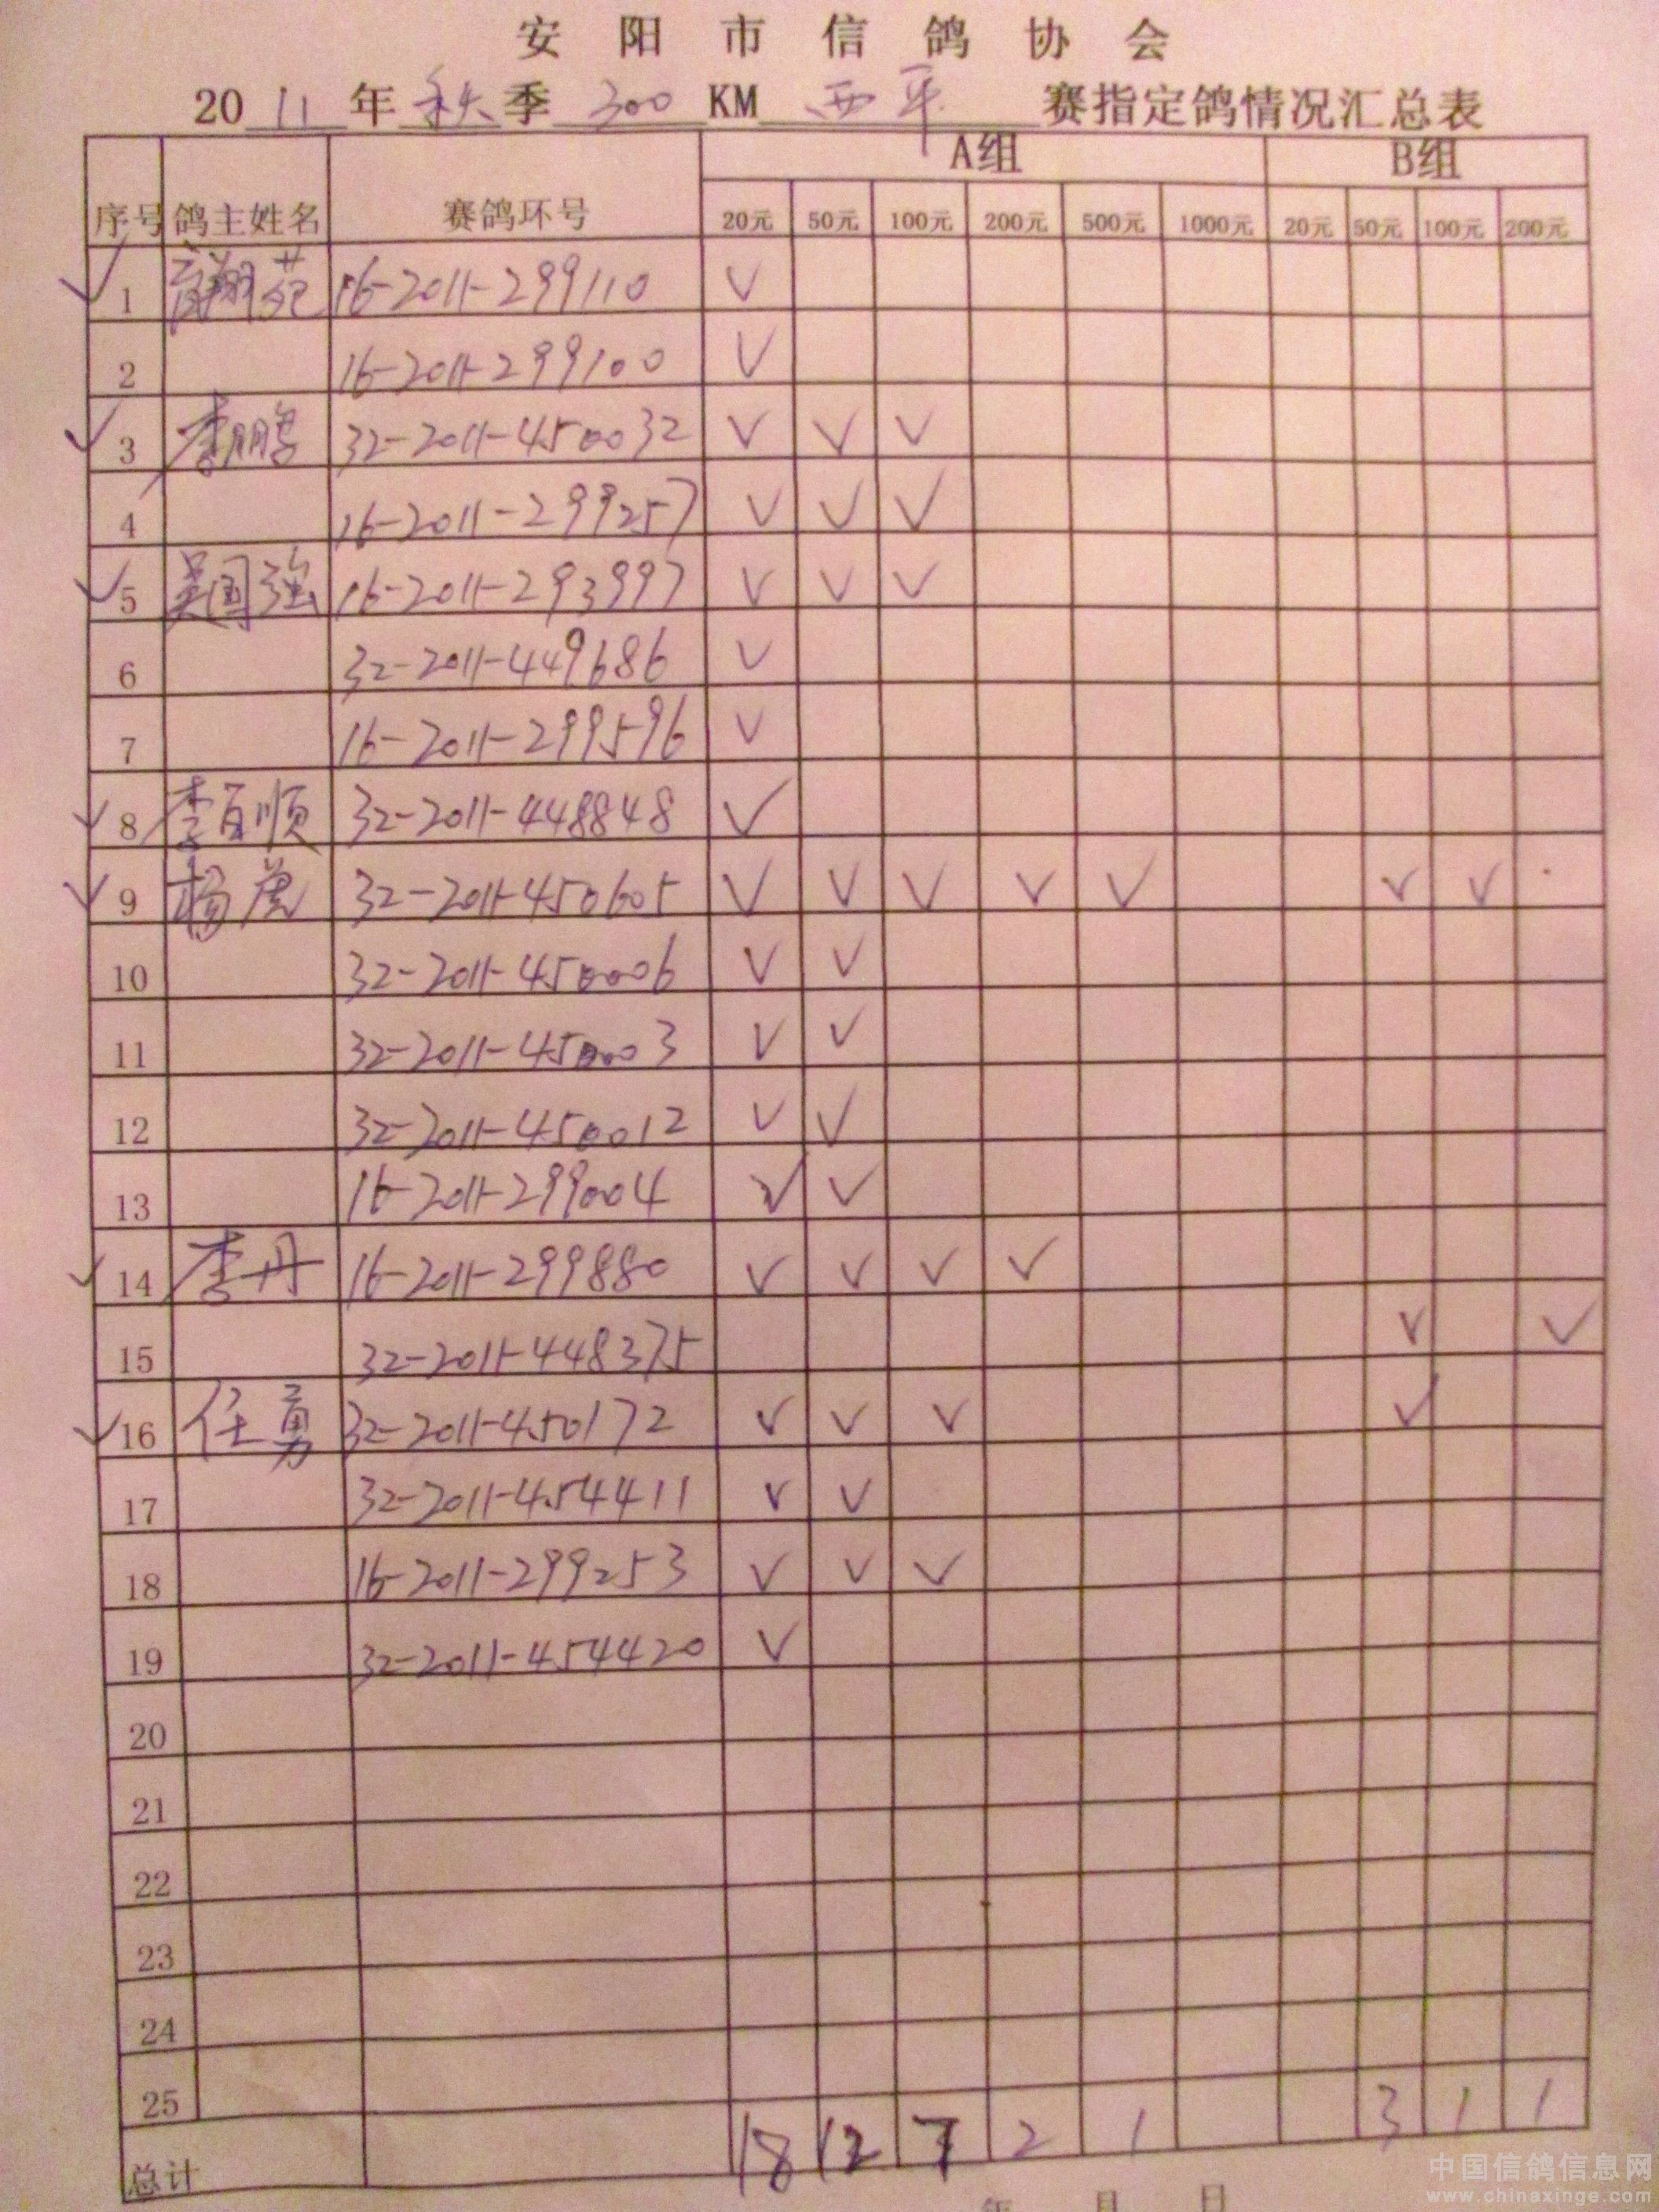 安阳市信鸽协会
2011年秋季300KM西平赛指定鸽情况汇总表
序号 鸽主姓名 赛鸽环号 A组 B组
20元 50元 100元 200元 500元 1000元 20元 50元 100元 200元
✓1 翔苑 16-2011-299110 ✓
2 16-2011-299100 ✓
✓3 李鹏 32-2011-450032 ✓ ✓ ✓
4 16-2011-299257 ✓ ✓ ✓
✓5 吴国强 16-2011-293997 ✓ ✓ ✓
6 32-2011-449686 ✓
7 16-2011-299596 ✓
✓8 李百顺 32-2011-448848 ✓
✓9 杨虎 32-2011-450605 ✓ ✓ ✓ ✓ ✓ ✓ ✓
10 32-2011-450006 ✓ ✓
11 32-2011-450003 ✓ ✓
12 32-2011-450012 ✓ ✓
13 16-2011-299004 ✓ ✓
✓14 李丹 16-2011-299880 ✓ ✓ ✓ ✓
15 32-2011-448375 ✓ ✓
✓16 任勇 32-2011-450172 ✓ ✓ ✓ ✓
17 32-2011-454411 ✓ ✓
18 16-2011-299253 ✓ ✓ ✓
19 32-2011-454420 ✓
20
21
22
23
24
25
总计 18 12 7 2 1 3 1 1
年 月 日
中国信鸽信息网
www.chinaxinge.com